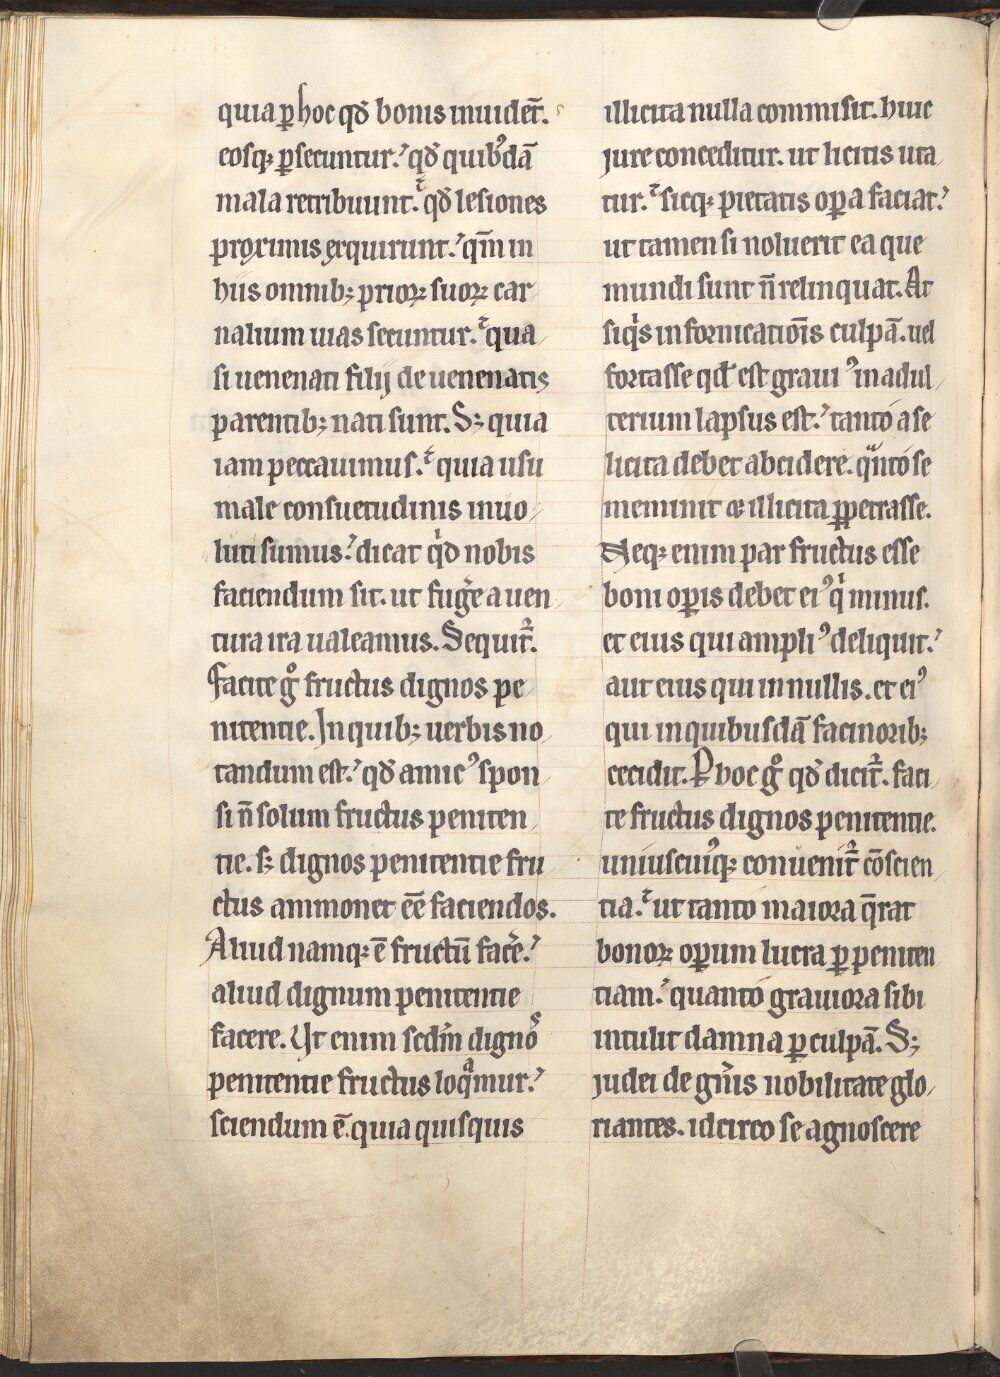 quia ꝑ hoc qd̄ bonis inuidēt.
eosqꝫ ꝑsecuntur. qd̄ quibꝰdā
mala retribuunt. qd̄ lesiones
proximis exquirunt. qm̄ in
hiis omnibꝫ prioꝝ suoꝝ car
nalium uias secuntur. qua
si uenenati filij de uenenatis
parentibꝫ nati sunt. Sꝫ quia
iam peccauimus. quia usu
male consuetudinis inuo
luti sumus. dicat qͥd nobis
faciendum sit. ut fugˀe a uen
tura ira ualeamus. Sequit᷑.
Facite gͦ fructus dignos pe
nitentie. In quibꝫ uerbis no
tandum est. qd̄ amicꝰ spon
si n̄ solum fructus peniten
tie. sꝫ dignos penitentie fru
ctus ammonet eē faciendos.
Aliud namqꝫ ē fructū facˀe.
aliud dignum penitentie
facere. Ut enim scdm̄ digno ͛
penitentie fructus loqͣmur.
sciendum ē. quia quisquis
illicita nulla commisit. huic
jure conceditur. ut licitis uta
tur. sicqꝫ pietatis oꝑa faciat.
ut tamen si noluerit ea que
mundi sunt n̄ relinquat. At
siqͥs in fornicatiōis culpā. uel
fortasse qd̄ est grauiꝰ in adul
terium lapsus est. tanto a se
licita debet abcidere. qͣnto se
meminit ⁊ illicita ꝑpetrasse.
Neqꝫ enim par fructus esse
boni oꝑis debet eiꝰ qͥ minus.
et eius qui ampliꝰ deliquit.
aut eius qui in nullis. et eiꝰ
qui in quibusdā facinoribꝫ
cecidit. Ꝑ hoc gͦ qd̄ dicit᷑. faci
te fructus dignos penitentie.
uniuscuiꝰqꝫ conuenit᷑ cōscien
tia. ut tanto maiora q̄rat
bonoꝝ oꝑum lucra ꝑ peniten
tiam. quanto grauiora sibi
intulit damna ꝑ culpā. Sꝫ
judei de gn̄is nobilitate glo
riantes. idcirco se agnoscere